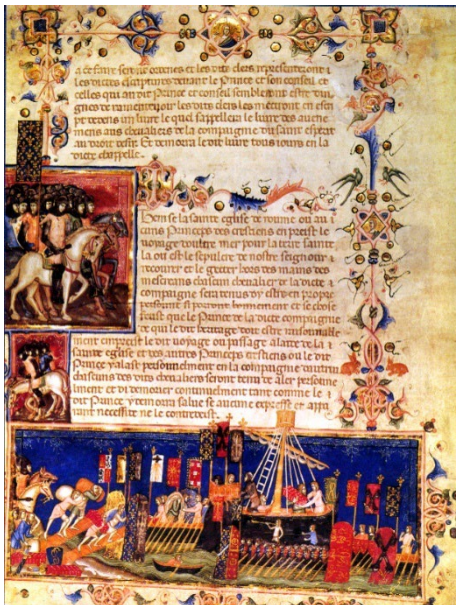 a ce faire seront ordenes et les dits clers representeront
les dictes escriptures devant le Prince et son conseil et
celles qui au dit Prince et conseil sembleront estre di
gnes de ramentevoir les dits clers les metront en esc
pt dedens un livre le quel s'appellera le livre des
mens aus chevaliers de la compaignie du saint esperit
au droit desir Et demoura le dit livre tous jours en la
dicte chappelle
se la sainte eglise de roume ou
cuns Princeps des crestiens en preist le
voyage doutre mer pour la terre sainte
la ou est le sepulcre de nostre seignour
recouvrer et le geter hors des mains des
mescreans chascun chevalier de la dicte
compaignie sera tenus dy estre en propre
persone si porra bonnement et se chose
feust que le Prince de la dicte compaignie
de qui le dit heritage doit estre raisonnable
ment empreist le dit voyage ou passage a laide de la
sainte eglise et des autres Princeps crestiens ou le dit
Prince y alast personelment en la compaignie dautrui
chascuns des dis chevaliers seront tenu de aler persone
lment et di demourer continuelment tant comme le
dit Prince y demoura salve se aucune expresse et appa
rant necessite ne le contredeist